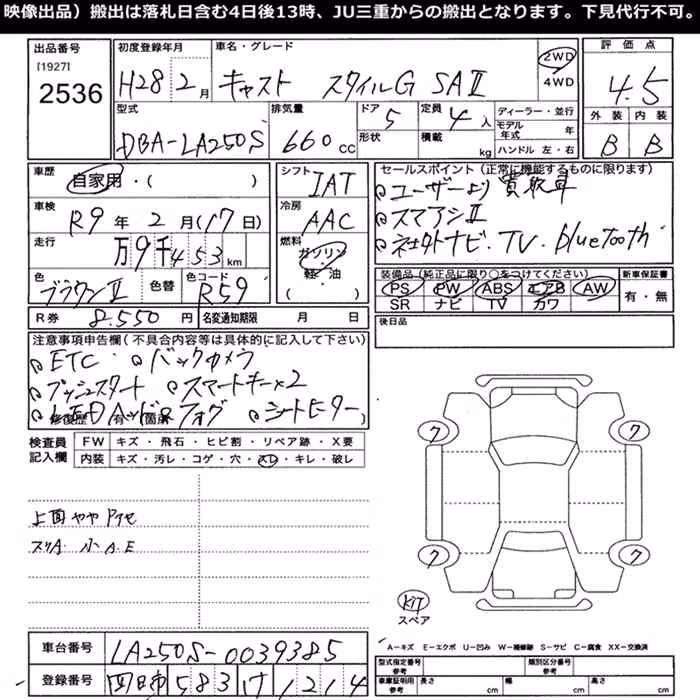 映像出品）搬出は落札日含む4日後13時、JU三重からの搬出となります。下見代行不可。
出品番号 初度登録年月 車名・グレード 評価点
[1927] 2536
H28 2月 キャスト スタイルG SAⅡ 2WD 4WD 4.5
型式 排気量 ドア 定員 ディーラー・並行 外装 内装
DBA-LA250S 660cc 5 4人 モデル年式 年 B B
形状 積載 kg ハンドル 左・右
車歴 シフト セールスポイント（正常に機能するものに限ります）
自家用・( ) IAT ユーザーより買取車
車検 冷房 スマアシⅡ
R9年2月(17日) AAC 社外ナビ・TV・bluetooth
走行 燃料
万9千453km ガソリン 軽・油 ( )
装備品（純正品に限り○をつけてください） 新車保証書
色 色替 色コード PS PW ABS エアB AW 有・無
ブラウンⅡ R59 SR ナビ TV 万ワ
R券 8.550円 名変通知期限 月 日 後日品
注意事項申告欄（不具合内容等は具体的に記入して下さい）
ETC・バックカメラ
プッシュスタート スマートキー×2
LEDヘッド フォグ シートヒーター
修復歴 有 (箇所 )
検査員記入欄 FW キズ・飛石・ヒビ割・リペア跡・X要
内装 キズ・汚レ・コゲ・穴・スレ・キレ・破レ
ワ ワ
上面やや
スリA. 小A.E
ワ ワ
KIT
スペア
車台番号 LA250S-0039385
A-キズ E-エクボ U-凹み W-補修跡 S-サビ C-腐食 XX-交換済
登録番号 四日市 583 け 1214
型式指定番号 参考 類別区分番号 参考
車庫証明用 参考 長さ cm 幅 cm 高さ cm